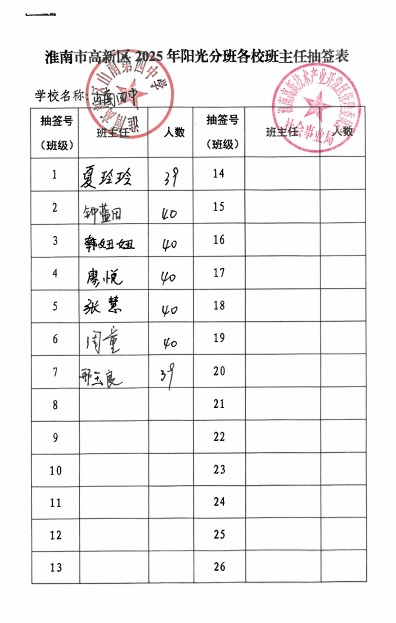 淮南市高新区2025年阳光分班各校班主任抽签表
学校名称：山南四中
抽签号（班级） 班主任 人数 抽签号（班级） 班主任 人数
1 夏玲玲 39 14
2 钟蓝田 40 15
3 韩妞妞 40 16
4 廖悦 40 17
5 张慧 40 18
6 闫童 40 19
7 邢玉良 39 20
8 21
9 22
10 23
11 24
12 25
13 26
山南第四中学
社会事业局